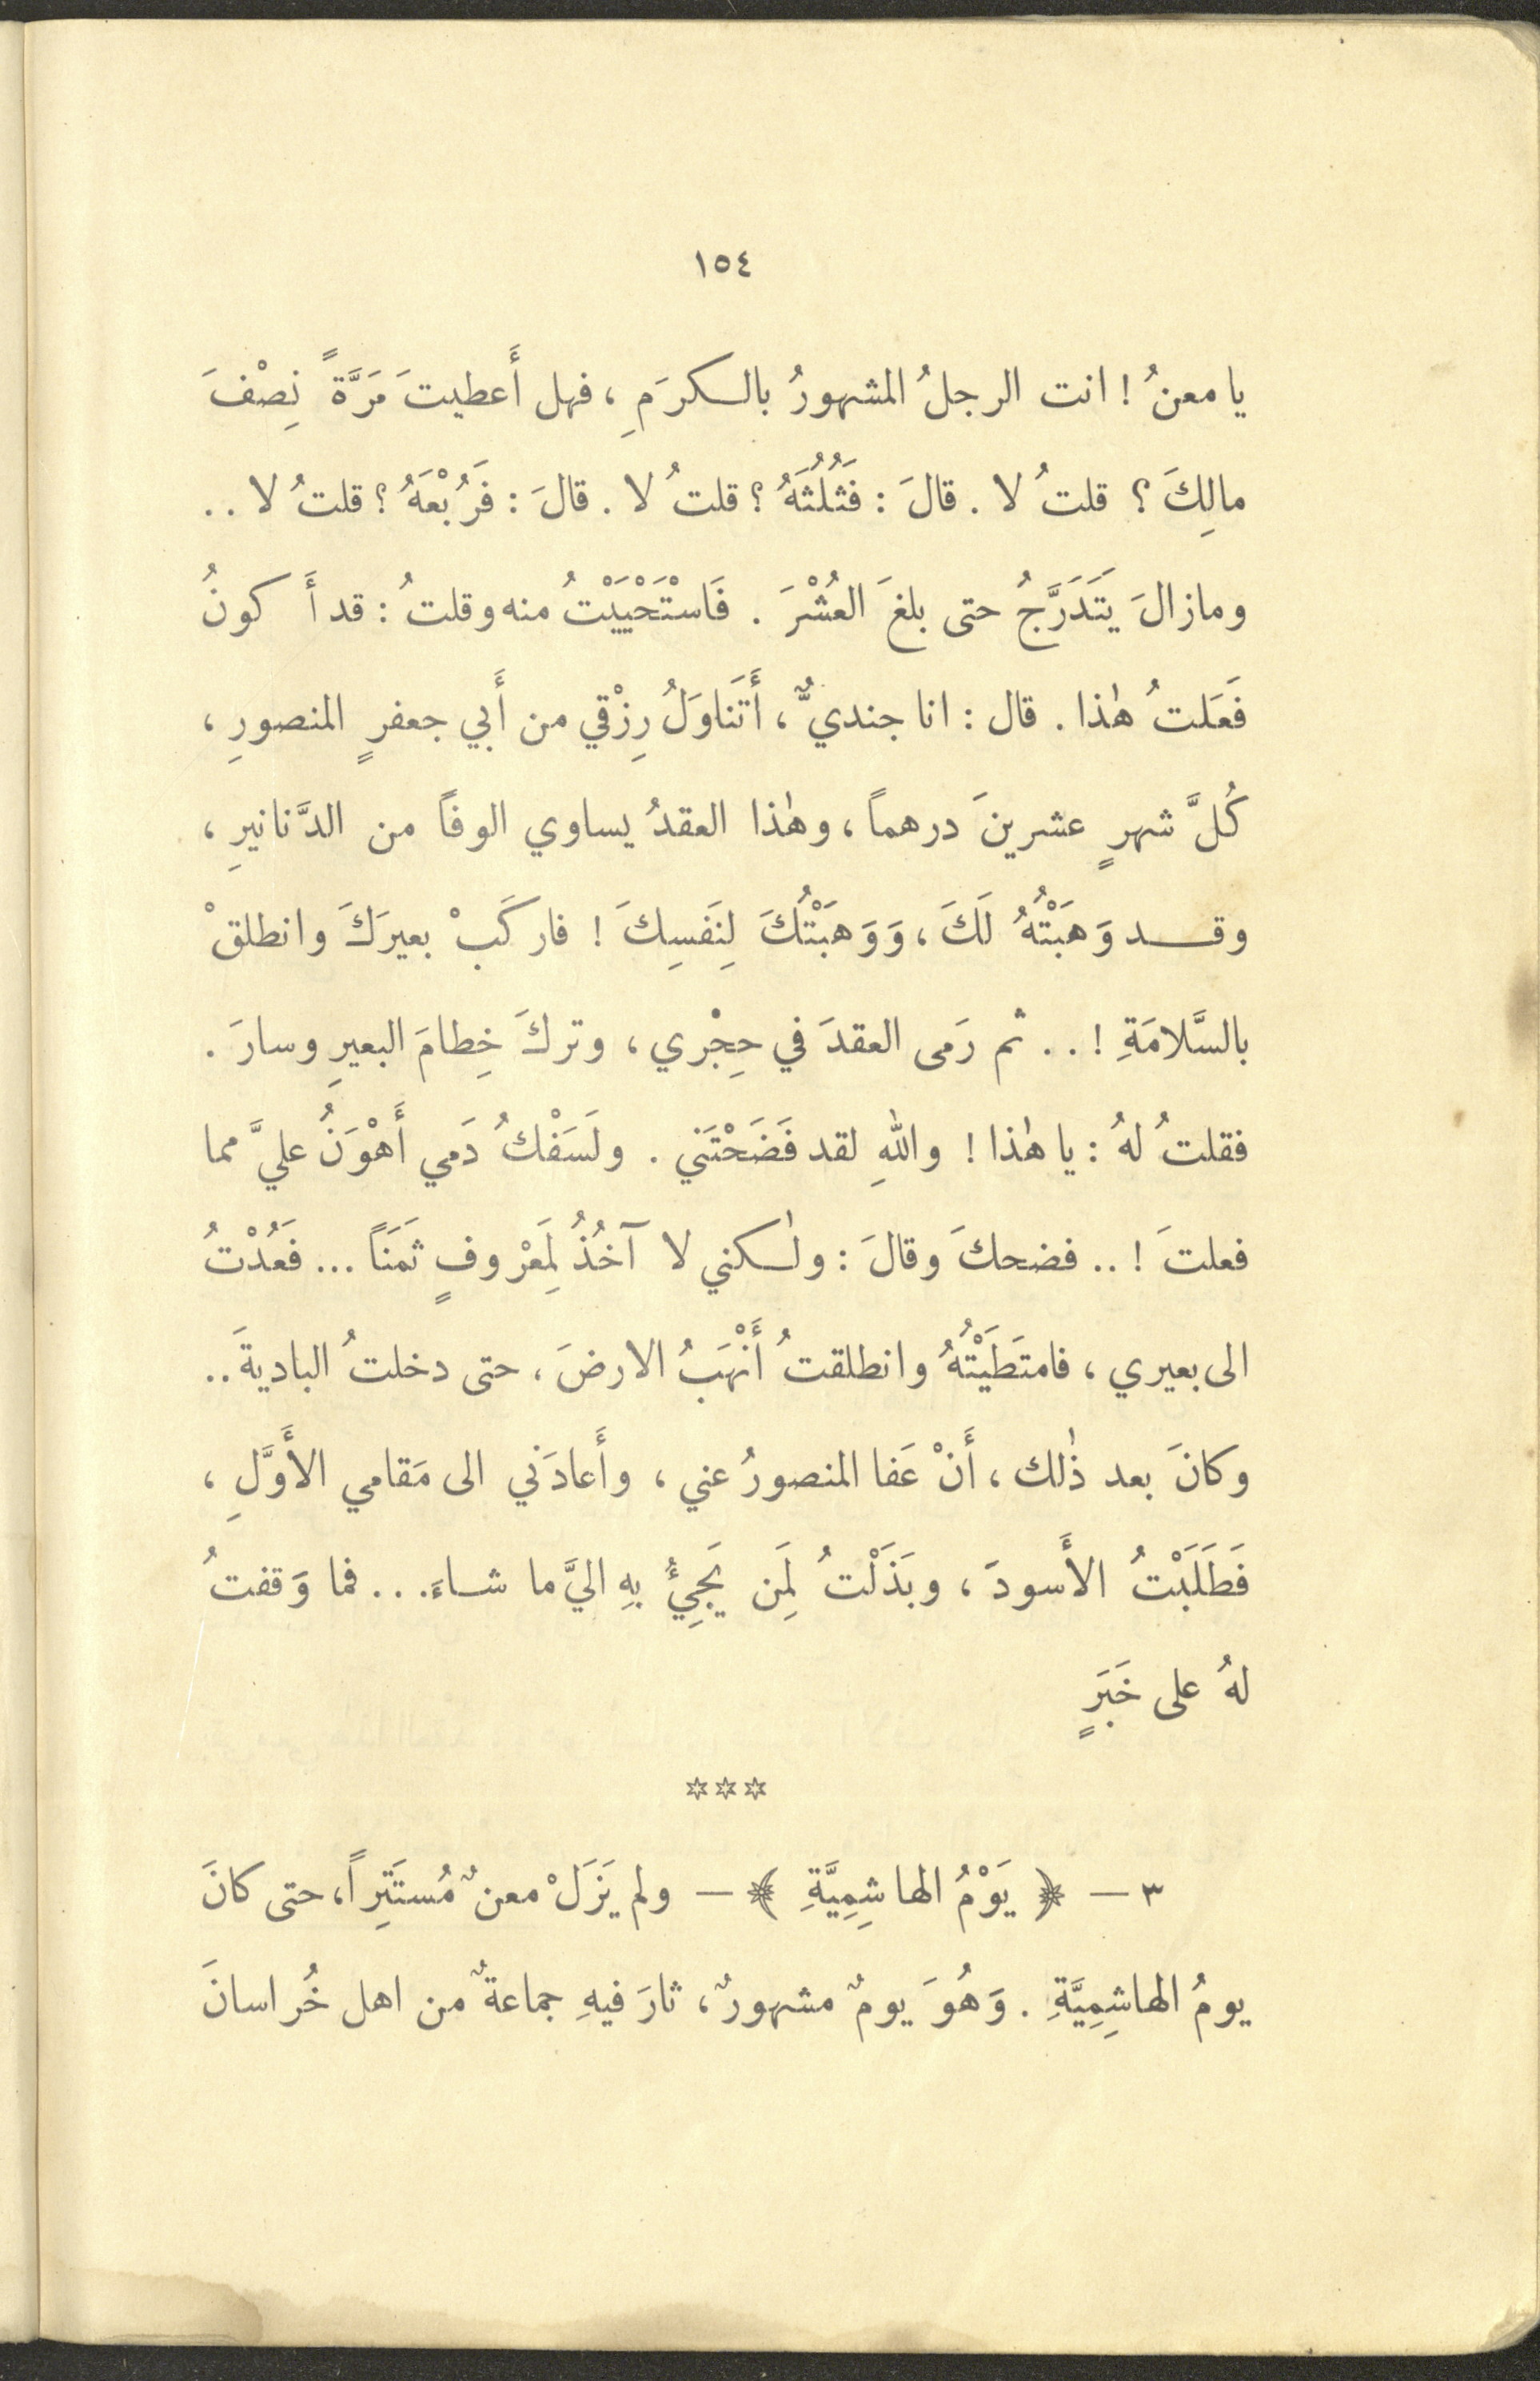 ١٥٤
يا معنُ ! انت الرجلُ المشهورُ بالكرَمِ ، فهل أَعطيتَ مَرَّةً نِصْفَ
مالِكَ ؟ قلتُ لا . قالَ : فَثُلُثَهُ ؟ قلتُ لا . قالَ : فَرُبْعَهُ ؟ قلتُ لا ..
وما زالَ يَتَدَرَّجُ حتى بلغَ العُشْرَ . فَاسْتَحْيَيْتُ منه وقلتُ : قد أَكونُ
فَعَلتُ هٰذا . قال : انا جنديٌّ ، أَتَناوَلُ رِزْقي من أَبي جعفرٍ المنصورِ ،
كُلَّ شهرٍ عشرينَ درهماً ، وهٰذا العقدُ يساوي الوفاً من الدَّنانيرِ ،
وقد وَهَبْتُهُ لَكَ ، وَوَهَبْتُكَ لِنَفسِكَ ! فاركَبْ بعيرَكَ وانطلقْ
بالسَّلامَةِ ! .. ثم رَمى العقدَ في حِجْري ، وتركَ خِطامَ البعيرِ وسارَ .
فقلتُ لهُ : يا هٰذا ! واللهِ لقد فَضَحْتَني . ولَسَفْكُ دَمي أَهْوَنُ عليَّ مما
فعلتَ ! .. فضحكَ وقالَ : ولٰكنني لا آخُذُ لِمَعْروفٍ ثَمَنَاً ... فَعُدْتُ
الى بعيري ، فامتَطَيْتُهُ وانطلقتُ أَنْهَبُ الارضَ ، حتى دخلتُ الباديةَ ..
وكانَ بعد ذٰلك ، أَنْ عَفا المنصورُ عني ، وأَعادَني الى مَقامي الأَوَّلِ ،
فَطَلَبْتُ الأَسودَ ، وبَذَلْتُ لِمَن يَجِيْءُ بهِ اليَّ ما شاءَ ... فما وَقفتُ
لهُ على خَبَرٍ
***
٣ — ﴿ يَوْمُ الهاشِمِيَّةِ ﴾ — ولم يَزَلْ معنٌ مُستَتِراً ، حتى كانَ
يومُ الهاشِمِيَّةِ . وَهُوَ يومٌ مشهورٌ ، ثارَ فيهِ جماعةٌ من اهل خُراسانَ